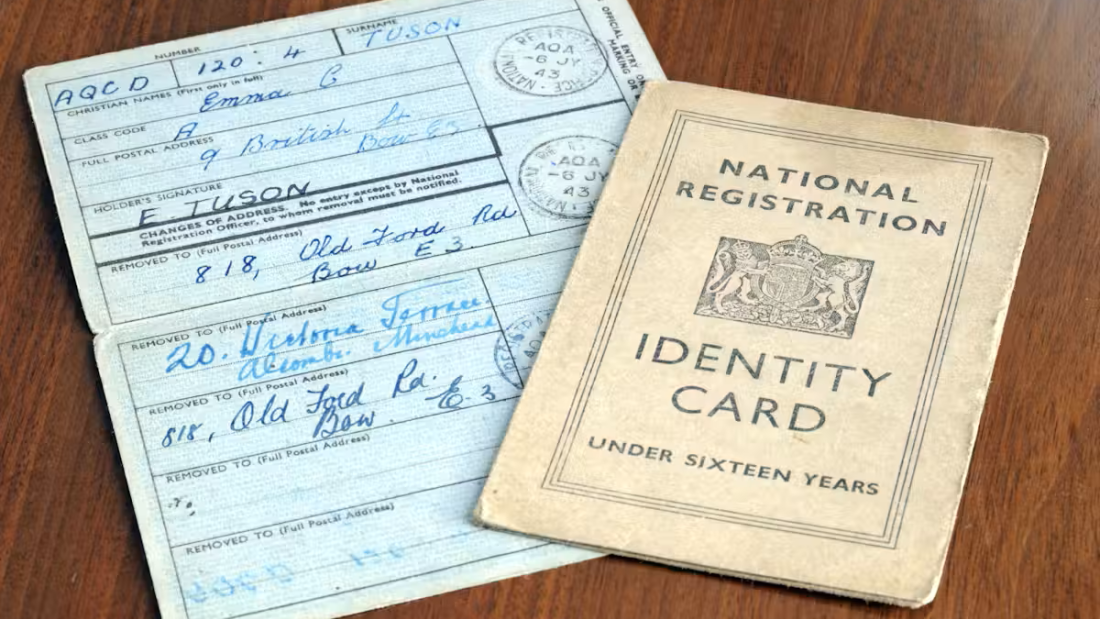 NUMBER
SURNAME
AQCD 120 : 4
TUSON
CHRISTIAN NAMES (First only in full)
Emma C
CLASS CODE A
FULL POSTAL ADDRESS
9 British St
Bow E3
HOLDER'S SIGNATURE
E. TUSON
CHANGES OF ADDRESS. No entry except by National
Registration Officer, to whom removal must be notified.
REMOVED TO (Full Postal Address)
818, Old Ford Rd
Bow E 3
REMOVED TO (Full Postal Address)
20. Victoria Terrace.
Alcombe. Minehead
REMOVED TO (Full Postal Address)
818, Old Ford Rd.
Bow. E. 3
REMOVED TO (Full Postal Address)
REMOVED TO (Full Postal Address)
OFFICIAL ENTRY
MARKING OR
NATIONAL REGISTRATION OFFICE
AQA
-6 JY
43
AQA
-6 JY
43
NATIONAL
REGISTRATION
IDENTITY
CARD
UNDER SIXTEEN YEARS